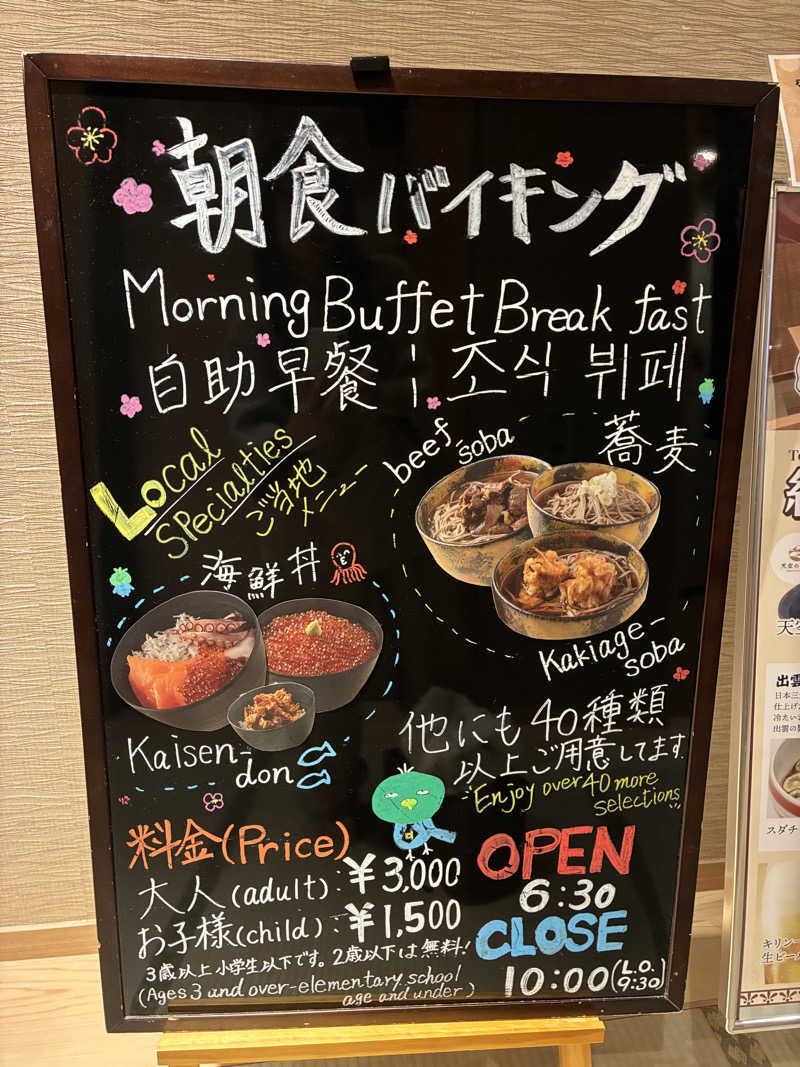 朝食バイキング
Morning Buffet Break fast
自助早餐 | 조식 뷔페
Local
Specialties
ご当地
メニュー
beef-
soba
蕎麦
海鮮丼
Kakiage-
soba
Kaisen-
don
他にも40種類
以上ご用意してます
Enjoy over 40 more
selections
料金(Price)
大人(adult):¥3,000
お子様(child):¥1,500
3歳以上小学生以下です。2歳以下は無料!
(Ages 3 and over-elementary school
age and under)
OPEN
6:30
CLOSE
10:00(L.O.
9:30)
出雲
日本三
仕上げ
冷たい
出雲の
スダチ
キリン
生ビー